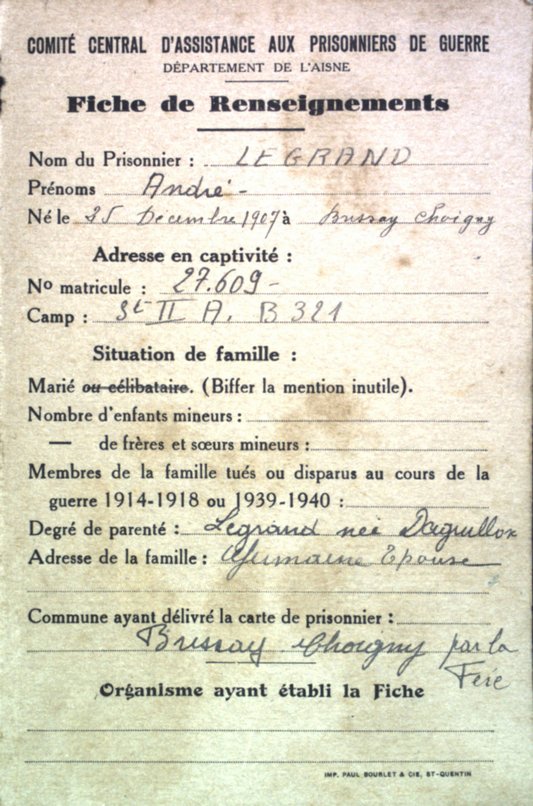 COMITÉ CENTRAL D'ASSISTANCE AUX PRISONNIERS DE GUERRE
DÉPARTEMENT DE L'AISNE
Fiche de Renseignements
Nom du Prisonnier : LEGRAND
Prénoms André -
Né le 25 Décembre 1907 à Brissay Choigny
Adresse en captivité :
No matricule : 27.609 -
Camp : St II A. B 321
Situation de famille :
Marié ou célibataire. (Biffer la mention inutile).
Nombre d'enfants mineurs :
— de frères et sœurs mineurs :
Membres de la famille tués ou disparus au cours de la
guerre 1914-1918 ou 1939-1940 :
Degré de parenté : Legrand née
Adresse de la famille : Germaine Epouse
Commune ayant délivré la carte de prisonnier :
Brissay Choigny par la
Fère
Organisme ayant établi la Fiche
IMP. PAUL BOURLET & CIE, ST-QUENTIN